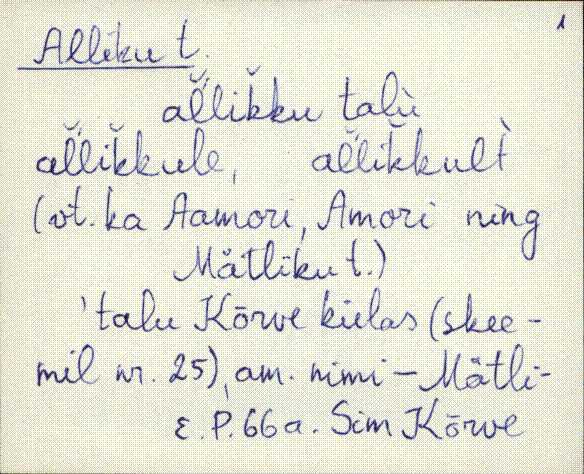 1
Alliku t.
al̆lĭk̆ku talù
al̆lĭk̆kule, al̆lĭk̆kul̀t
(vt. ka Aamori, Amori ning
Mätliku t.)
'talu Kõrve kielas (skee-
mil nr. 25), am. nimi – Mätli-
E. P. 66 a. Sim Kõrve